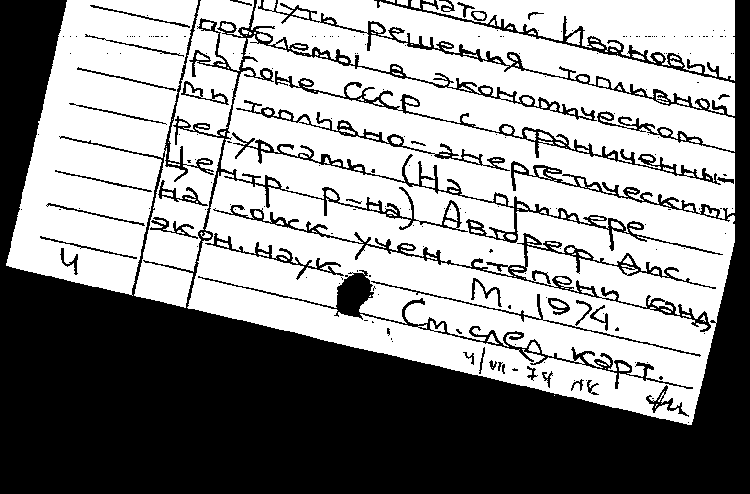 Анатолий Иванович.
Пути решения топливной
проблемы в экономическом
районе СССР с ограниченны-
ми топливно-энергетическими
ресурсами. (На примере
Центр. р-на). Автореф. дис.
на соиск. учен. степени канд.
экон. наук. М., 1974.
См. след. карт.
Ч
4/VII-74